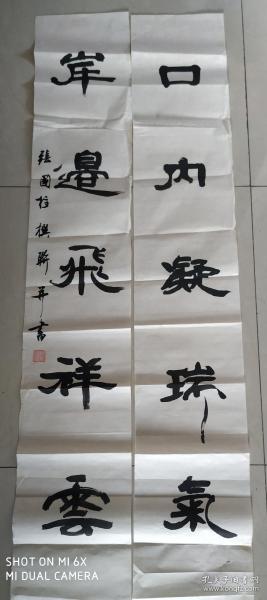 口内凝瑞氣
岸邉飛祥雲
張國柱撰聯并書
SHOT ON MI 6X
MI DUAL CAMERA
孔夫子旧书网